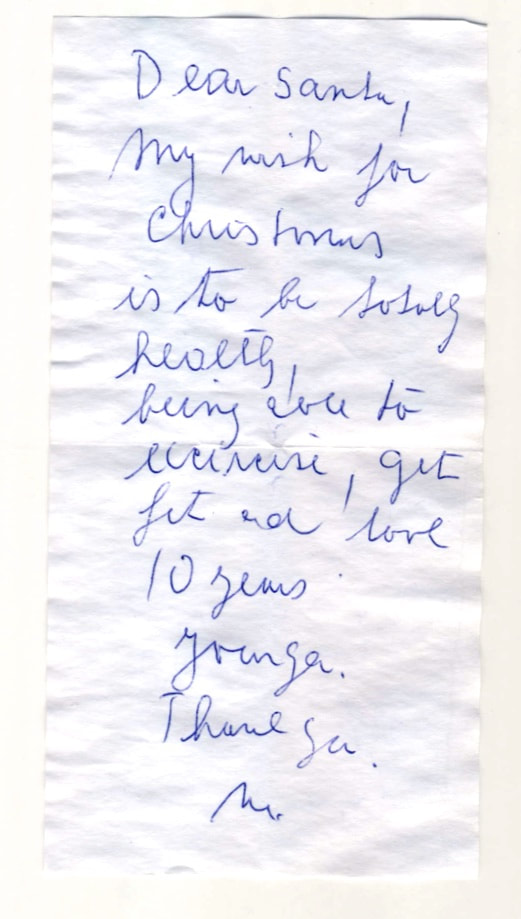 Dear Santa,
My wish for
Christmas
is to be totally
healthy,
being able to
exercise, get
fit and look
10 years
younger.
Thank you.
M.